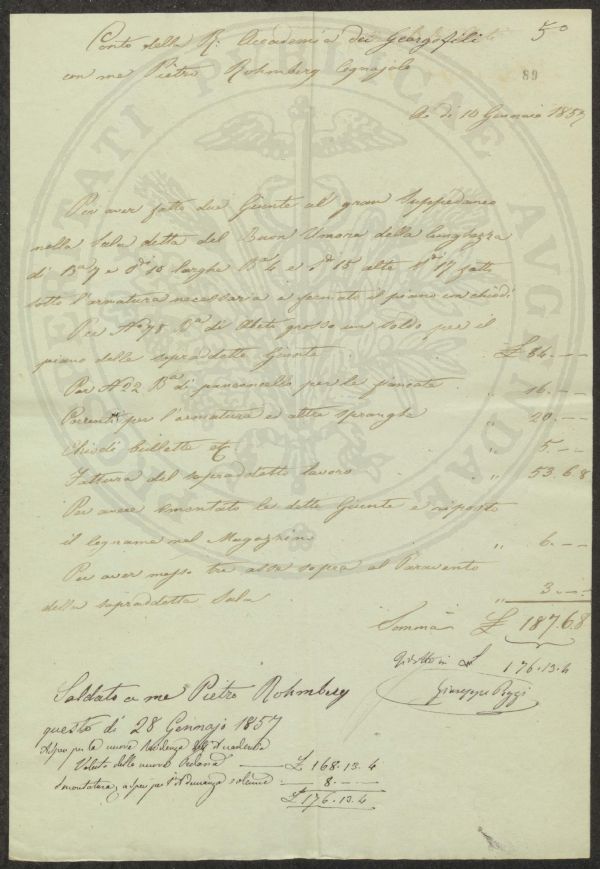 Conto della R: Accademia dei Georgofili
50
con me Pietro Rohmberg Legnajolo
89
A dì 10 Gennaio 1857
Per aver fatto due Giunte al gran Suppedaneo
nella Sala detta del Buon Umore della lunghezza
di Ba 7 e di 10 larghe Ba 4 e di 15 alte 17 fatto
sotto l'armatura necessaria e fermato il piano con chiodi
Per No 78 Ba di Abete grosso un Soldo per il
piano delle sopradette Giunte £ 84. - -
Per N 22 Ba di pancancello per le fiancate " 16. - -
Correnti per l'armatura e altre spranghe " 20. - -
Chiodi bullette " 5. - -
Fattura del sopradetto lavoro " 53. 6. 8
Per avere smontato le dette Giunte e riposto
il legname nel Magazzino " 6. - -
Per aver messo tre alla sopra al Paravento
della sopraddetta Sala " 3. - -
Somma £ 187. 6. 8
Ridotto in £ 176. 13. 4
Giuseppe Poggi
Saldato a me Pietro Rohmberg
questo dì 28 Gennajo 1857
per la nuova Residenza
Valuta delle nuove £ 168. 13. 4
Smontatura, 8. - -
£ 176. 13. 4
PROSPERITATI PUBLICAE AUGENDAE